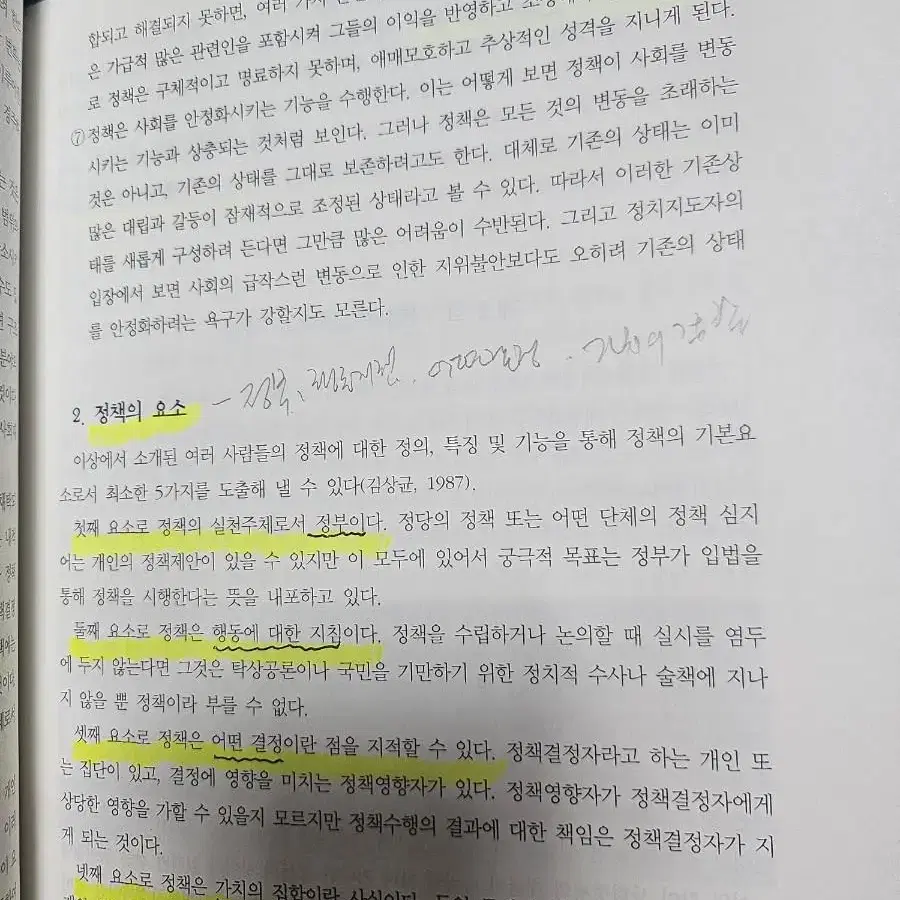 합되고 해결되지 못하면, 여러 가지
은 가급적 많은 관련인을 포함시켜 그들의 이익을 반영하고
로 정책은 구체적이고 명료하지 못하며, 애매모호하고 추상적인 성격을 지니게 된다.
⑦ 정책은 사회를 안정화시키는 기능을 수행한다. 이는 어떻게 보면 정책이 사회를 변동
시키는 기능과 상충되는 것처럼 보인다. 그러나 정책은 모든 것의 변동을 초래하는
것은 아니고, 기존의 상태를 그대로 보존하려고도 한다. 대체로 기존의 상태는 이미
많은 대립과 갈등이 잠재적으로 조정된 상태라고 볼 수 있다. 따라서 이러한 기존상
태를 새롭게 구성하려 든다면 그만큼 많은 어려움이 수반된다. 그리고 정치지도자의
입장에서 보면 사회의 급작스런 변동으로 인한 지위불안보다도 오히려 기존의 상태
를 안정화하려는 욕구가 강할지도 모른다.
2. 정책의 요소 - 정부,
이상에서 소개된 여러 사람들의 정책에 대한 정의, 특징 및 기능을 통해 정책의 기본요
소로서 최소한 5가지를 도출해 낼 수 있다(김상균, 1987).
첫째 요소로 정책의 실천주체로서 정부이다. 정당의 정책 또는 어떤 단체의 정책 심지
어는 개인의 정책제안이 있을 수 있지만 이 모두에 있어서 궁극적 목표는 정부가 입법을
통해 정책을 시행한다는 뜻을 내포하고 있다.
둘째 요소로 정책은 행동에 대한 지침이다. 정책을 수립하거나 논의할 때 실시를 염두
에 두지 않는다면 그것은 탁상공론이나 국민을 기만하기 위한 정치적 수사나 술책에 지나
지 않을 뿐 정책이라 부를 수 없다.
셋째 요소로 정책은 어떤 결정이란 점을 지적할 수 있다. 정책결정자라고 하는 개인 또
는 집단이 있고, 결정에 영향을 미치는 정책영향자가 있다. 정책영향자가 정책결정자에게
상당한 영향을 가할 수 있을지 모르지만 정책수행의 결과에 대한 책임은 정책결정자가 지
게 되는 것이다.
넷째 요소로 정책은 가치의 집합이란 사실이다.